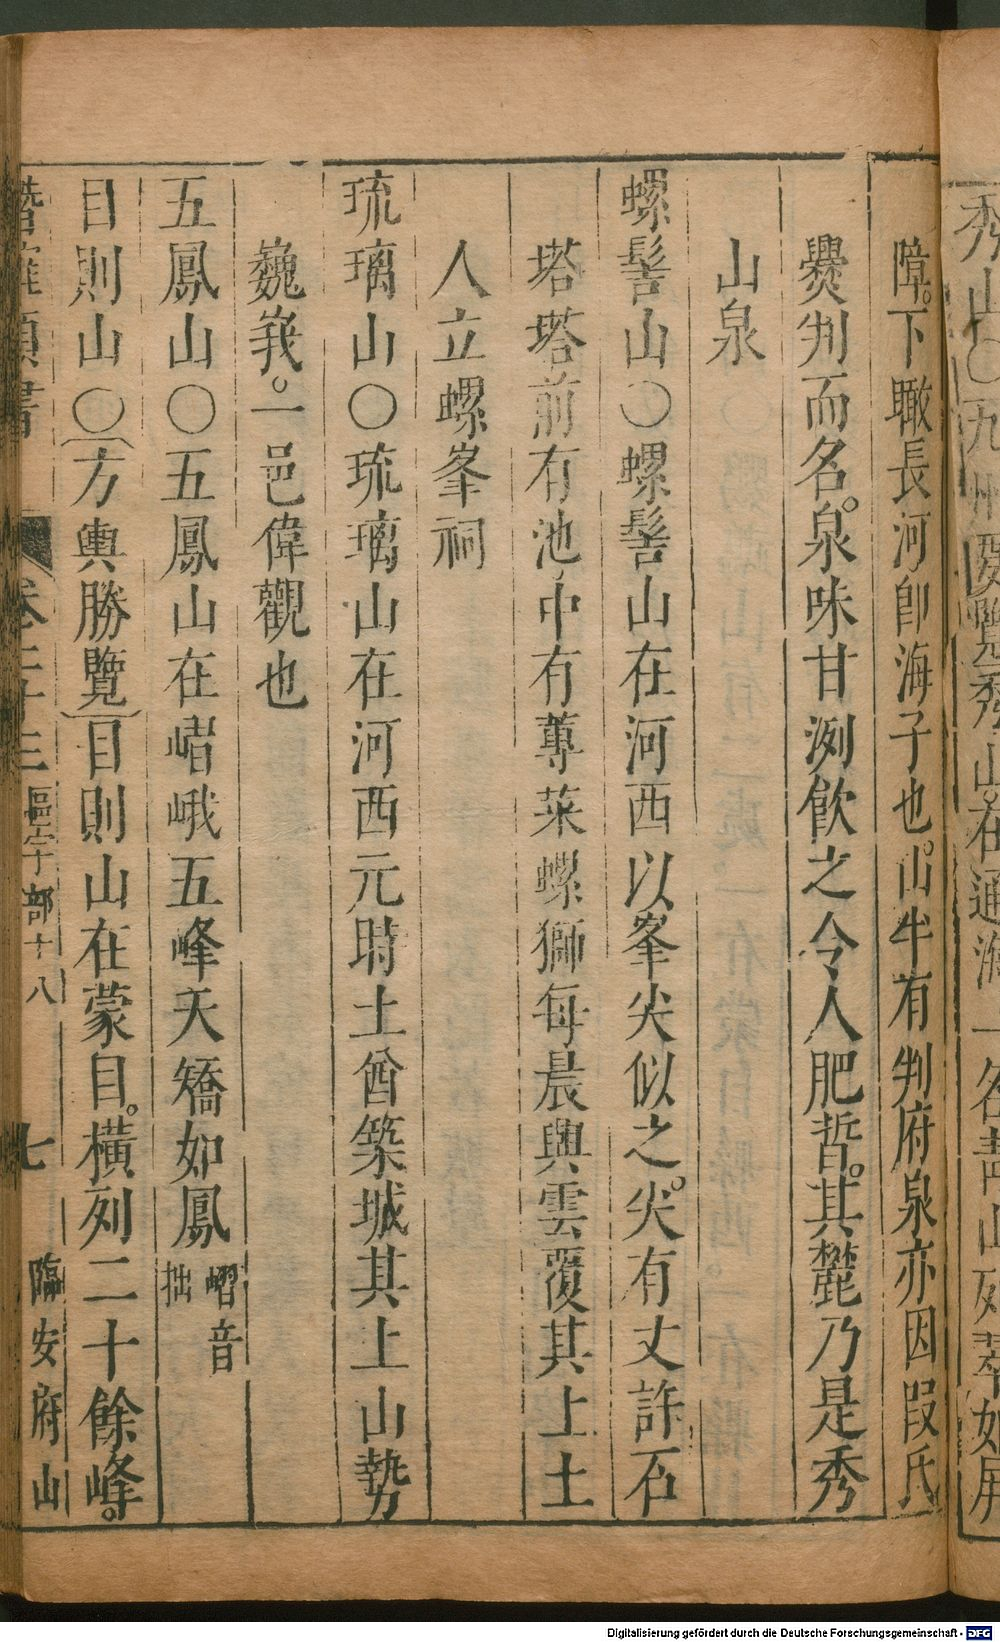 秀山○九州要覽秀山在通海一名青山巧萃如屏
障。下瞰長河卽海子也。山半有判府泉亦因叚氏
爨判而名。泉味甘洌飲之令人肥晢。其麓乃是秀
山泉
螺髻山○螺髻山在河西以峯尖似之。尖有丈許石
塔塔前有池中有蓴菜螺獅每晨興雲覆其上土
人立螺峯祠
琉璃山○琉璃山在河西元時土酋築城其上山勢
巍峩。一邑偉觀也
五鳳山○五鳳山在嶍峨五峰夭矯如鳳嶍音拙
目則山○〔方輿勝覽〕目則山在蒙目。橫列二十餘峰。
潛確類書 卷二十三 區宇部十八 七 臨安府山
Digitalisierung gefördert durch die Deutsche Forschungsgemeinschaft - DFG